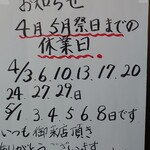 お知らせ
4月5月祭日までの
休業日
4/3.6.10.13.17.20
24.27.29日
5/1 3.4.5.6.8日です
いつも御来店頂き
ありがとうございます